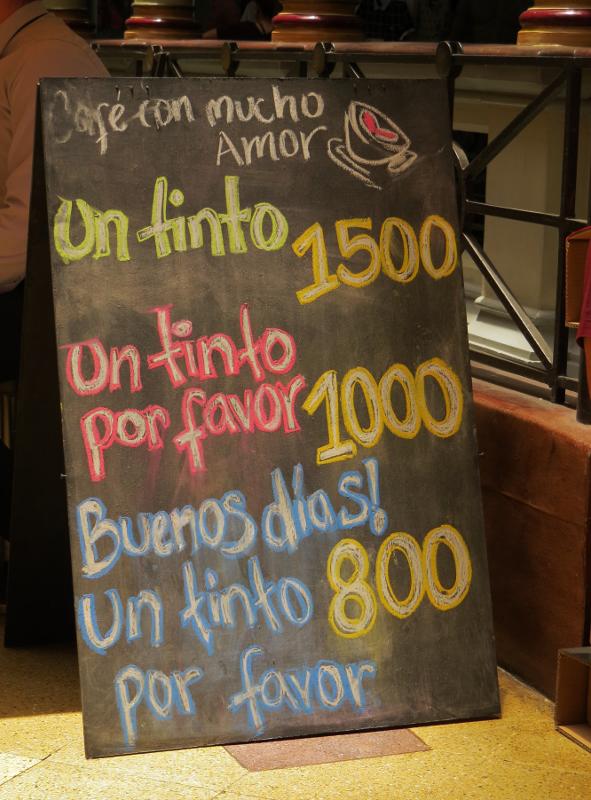 Café con mucho
Amor
Un tinto 1500
Un tinto
por favor 1000
Buenos días!
Un tinto 800
por favor